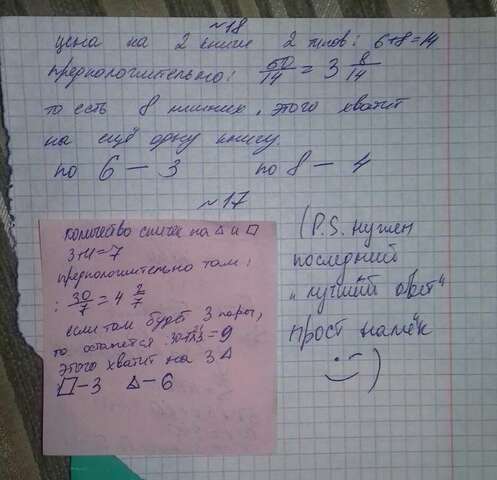 №18
цена на 2 книги 2 типов: 6+8=14
предположительно: 50/14 = 3 8/14
то есть 8 лишних, этого хватит
на ещё одну книгу.
по 6 — 3 по 8 — 4
№17
количество спичек на △ и □
3+4=7
предположительно там:
: 30/7 = 4 2/7
если там будет 3 пары,
то останется 30-7·3=9
этого хватит на 3 △
□-3 △-6
(P.S. нужен
последний
"лучший ответ"
прост намёк
:-)